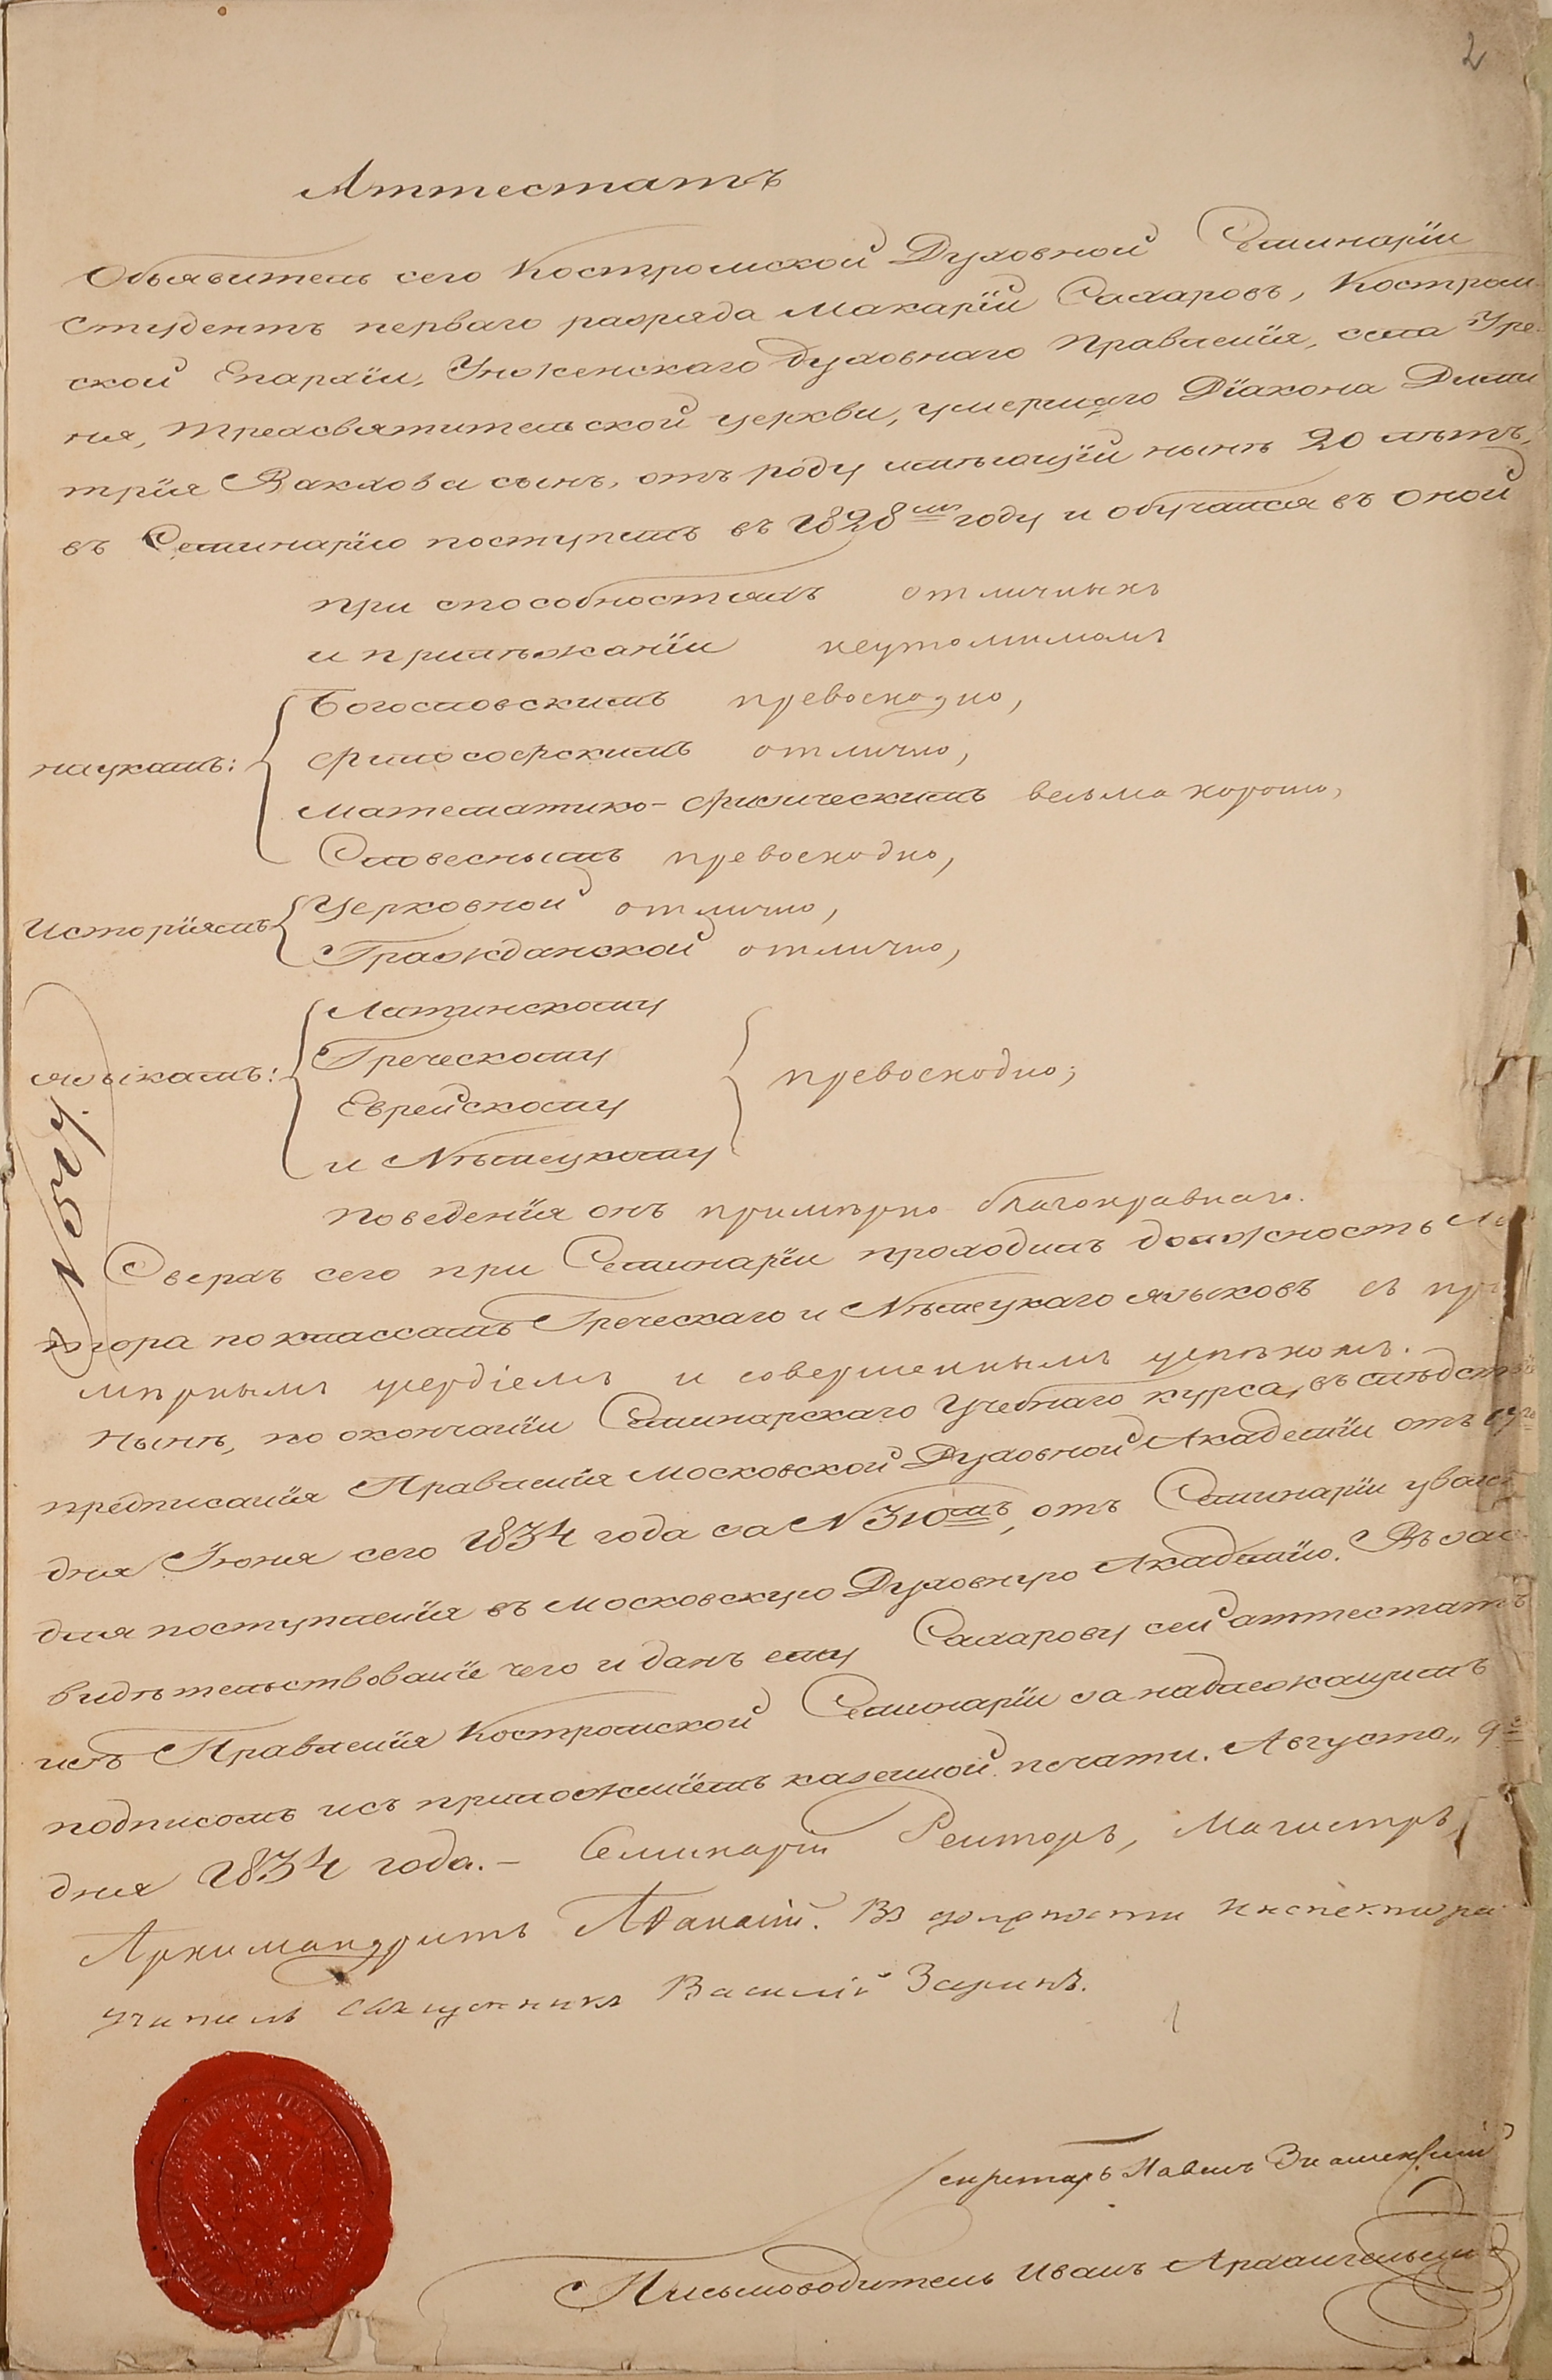 2
Аттестатъ
Объявитель сего Костромской Духовной Семинаріи
Студентъ перваго разряда Макарій Сахаровъ, Костром-
ской Епархіи, Унженскаго духовнаго Правленія, села Уре-
ня, Трехсвятительской церкви, умершаго Діакона Дими
трія Яковлева сынъ, отъ роду имѣющій нынѣ 20 лѣтъ,
въ Семинарію поступилъ въ 1828мъ году и обучался въ оной
при способностяхъ отличныхъ
и прилѣжаніи неутомимомъ
наукамъ:
Богословскимъ превосходно,
Философскимъ отлично,
Математико-физическимъ весьма хорошо,
Словеснымъ превосходно,
Исторіямъ
Церковной отлично,
Гражданской отлично,
языкамъ:
Латинскому
Греческому
Еврейскому
и Нѣмецкому
превосходно;
поведенія онъ примѣрно благонравнаго.
Сверхъ сего при Семинаріи проходилъ должность Ле
ктора по классамъ Греческаго и Нѣмецкаго языковъ съ при
мѣрнымъ усердіемъ и совершеннымъ успѣхомъ.
Нынѣ, по окончаніи Семинарскаго Учебнаго курса, въ слѣдствіе
предписанія Правленія Московской Духовной Академіи отъ
дня Іюня сего 1834 года за N 310мъ, отъ Семинаріи уволенъ
для поступленія въ Московскую Духовную Академію. Въ зас-
видѣтельствованіе чего и данъ ему Сахарову сей аттестатъ
изъ Правленія Костромской Семинаріи за надлежащимъ
подписомъ и съ приложеніемъ казенной печати. Августа „ 9го
дня 1834 года.– Семинаріи Ректоръ, Магистръ,
Архимандритъ Аѳанасій. Въ должности инспектора
учитель священникъ Василій
Секретарь Павелъ Знаменскій
Письмоводитель Иванъ Архангельскій